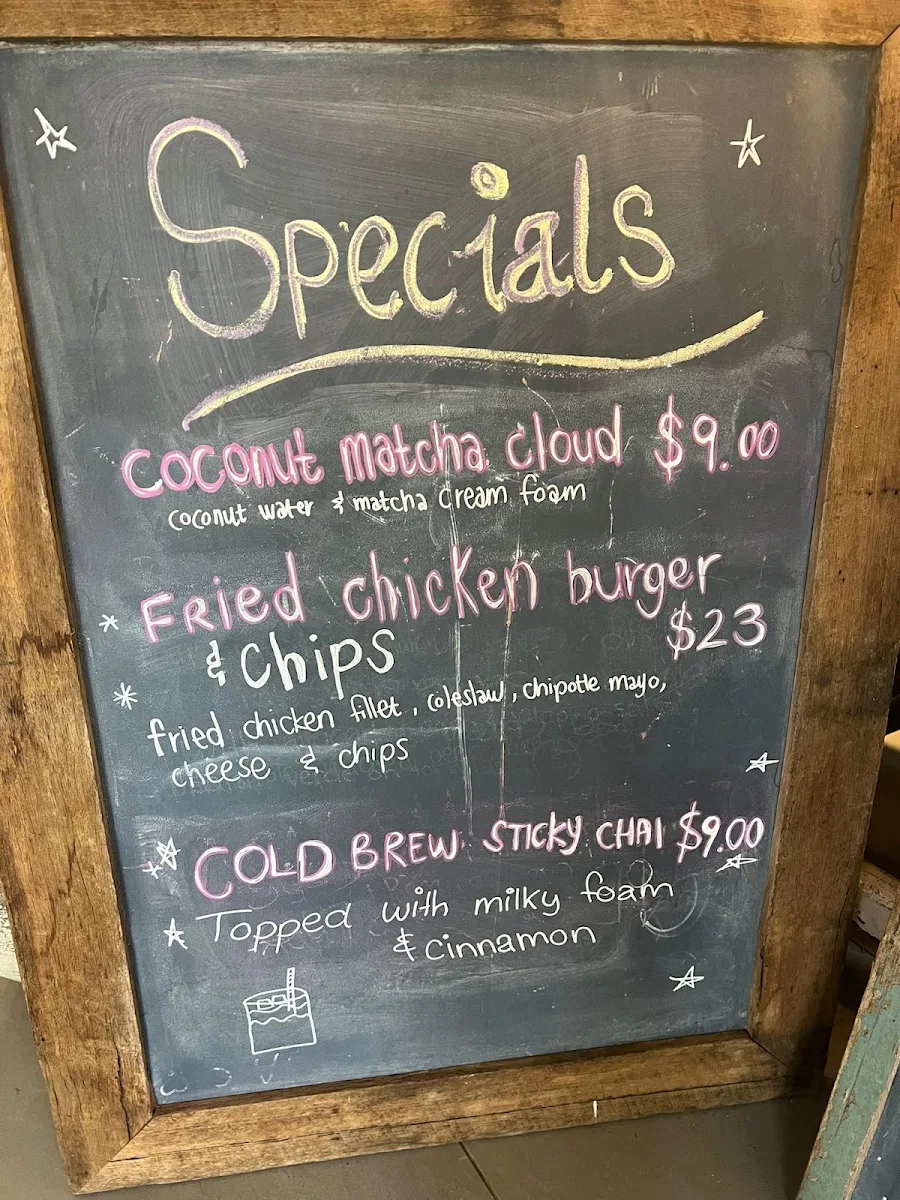 Specials
Coconut matcha cloud $9.00
coconut water & matcha cream foam
Fried chicken burger
$23
& Chips
fried chicken fillet, coleslaw, chipotle mayo,
cheese & chips
COLD BREW STICKY CHAI $9.00
Topped with milky foam
& cinnamon